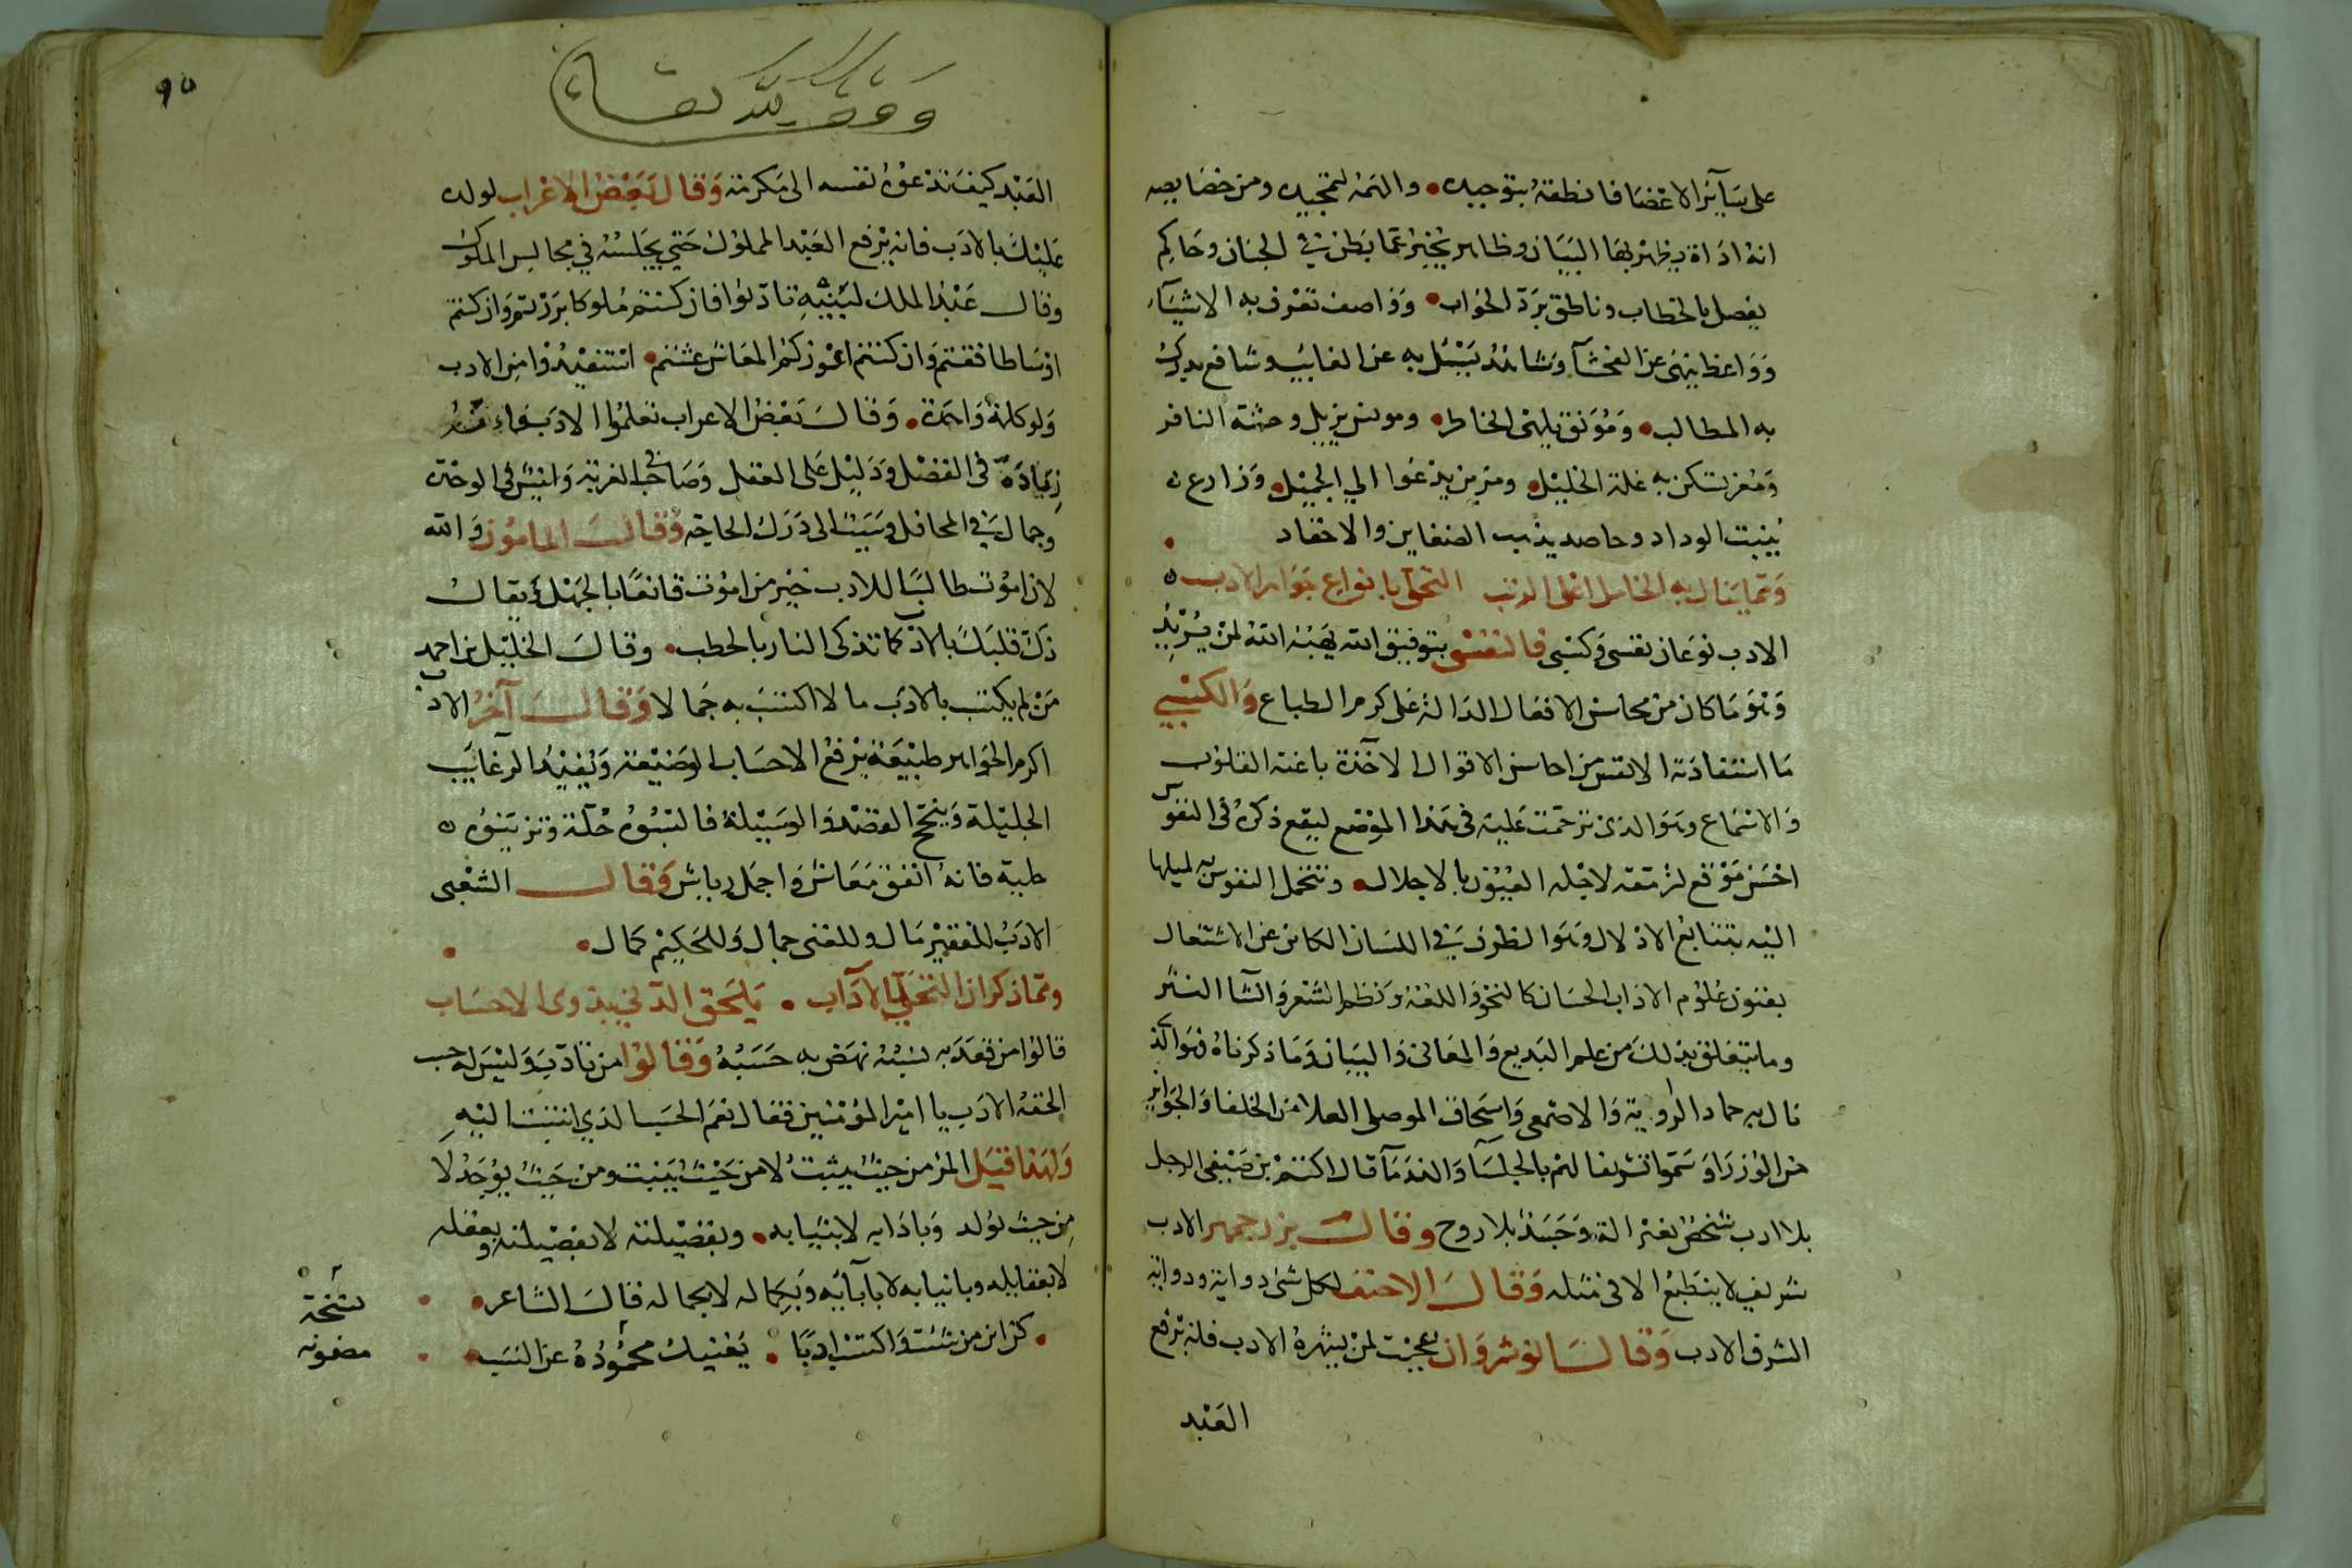 على سآئر الاعضا فانطقه بتوحيده • والهمه لتمجيده ومن خصايصه
انه اداة يظهر بها البيان وظاهر يخبر عما بطن في الجنان وحاكم
يفصل بالخطاب وناطق يرد الجواب • وواصف تعرف به الاشيآء
وواعظ ينهى عن الفحشآ وشاهد يسئل به عن الغايب وشافع يدرك
به المطالب • ومونق يلهى الخاطر • ومونس يزيل وحشة النافر
ومعز تسكن به غلة الخليل • ومزين يدعوا الي الجميل • وزارع
ينبت الوداد وحاصد يذهب الضغاين والاحقاد •
ومما ينال به الخامل اعلى الرتب التحلى بانواع جواهر الادب
الادب نوعان نفسى وكسبى فالنفسى بتوفيق الله يهبه الله لمن يريد
وهو ما كان من محاسن الافعال الدالة على كرم الطباع والكسبي
ما استفادته الانفس من احاسن الاقوال الآخذة باعنة القلوب
والاسماع وهو الذى ترجمت عليه فى هذا الموضع ليقع ذكره فى النفوس
احسن موقع لرمقه لاجله العيون بالاجلال • وتتحمل النفوس به لميلها
اليه بتتابع الاذلال وهو الظرف في اللسان الكامن عن الاشتغال
بفنون علوم الاداب الحسان كالنحو واللغة ونظم الشعر وانشآ النثر
وما يتعلق بذلك من علم البديع والمعانى والبيان وما ذكرناه فهو الذى
نال به حماد الراوية والاصمعى واسحاق الموصلى العلا من الخلفا والجوايز
من الوزرا وسموا تشريفا لهم بالجلسآ والندمآ قال اكثم بن صيفى الرجل
بلا ادب شخص بغير الة وجسد بلا روح وقال بزرجمهر الادب
شريف لا ينطبع الا فى مثله وقال الاحنف لكل شى دواية ودواية
الشرف الادب وقال انوشروان عجبت لمن يشهره الادب فانه يرفع
العبد
٩٥
وقف لله تعالى
العبد كيف تدعوه نفسه الى مكرمة وقال بعض الاعراب لولده
عليك بالادب فانه يرفع العبد المملوك حتي يجلسه في مجالس الملوك
وقال عبد الملك لبنيه تادبوا فان كنتم ملوكا برزتم وان كنتم
اوساطا فقتم وان كنتم اعوزكم المعاش عشتم • استفيدوا من الادب
ولو كلمة واحدة • وقال بعض الاعراب تعلموا الادب فانه
زيادة فى الفضل ودليل على العقل وصاحب فى الغربة وانيس فى الوحدة
وجمال في المحافل وسبب الى درك الحاجة وقال المامون والله
لان اموت طالبا للادب خير من اموت قانعا بالجهل ويقال
ذك قلبك بالادب كما تذكى النار بالحطب • وقال الخليل بن احمد
من لم يكتسب بالادب مالا اكتسب به جمالا وقال آخر الادب
اكرم الجواهر طبيعة يرفع الاحساب الوضيعة ويفيد الرغايب
الجليلة وينجح القصد والوسيلة فالبسوه حلة وتزينوه
حلية فانه انفق معاش واجمل رياش وقال الشعبى
الادب للفقير مال وللغنى جمال وللحكيم كمال •
ومما ذكر ان التحلي بالآداب • يلحق الدني بذوى الاحساب
قالوا من قعد به نسبه نهض به حسبه وقالوا من تادب وليس له حسب
الحقه الادب يا امير المؤمنين فقال نعم الحسب الذي انتسبت اليه
ولهذا قيل المرء من حيث يثبت لا من حيث ينبت ومن حيث يوجد لا
من حيث يولد وباذابه لا بثيابه • وبفضيلته لا بفصيلته وبعقله
لا بعقايله وبانيابه لا بآبآيه وبكماله لا بجماله قال الشاعر •
• كن ابن من شئت واكتسب ادبا • يغنيك محموده عن النسب •
نسخة
مضمونه